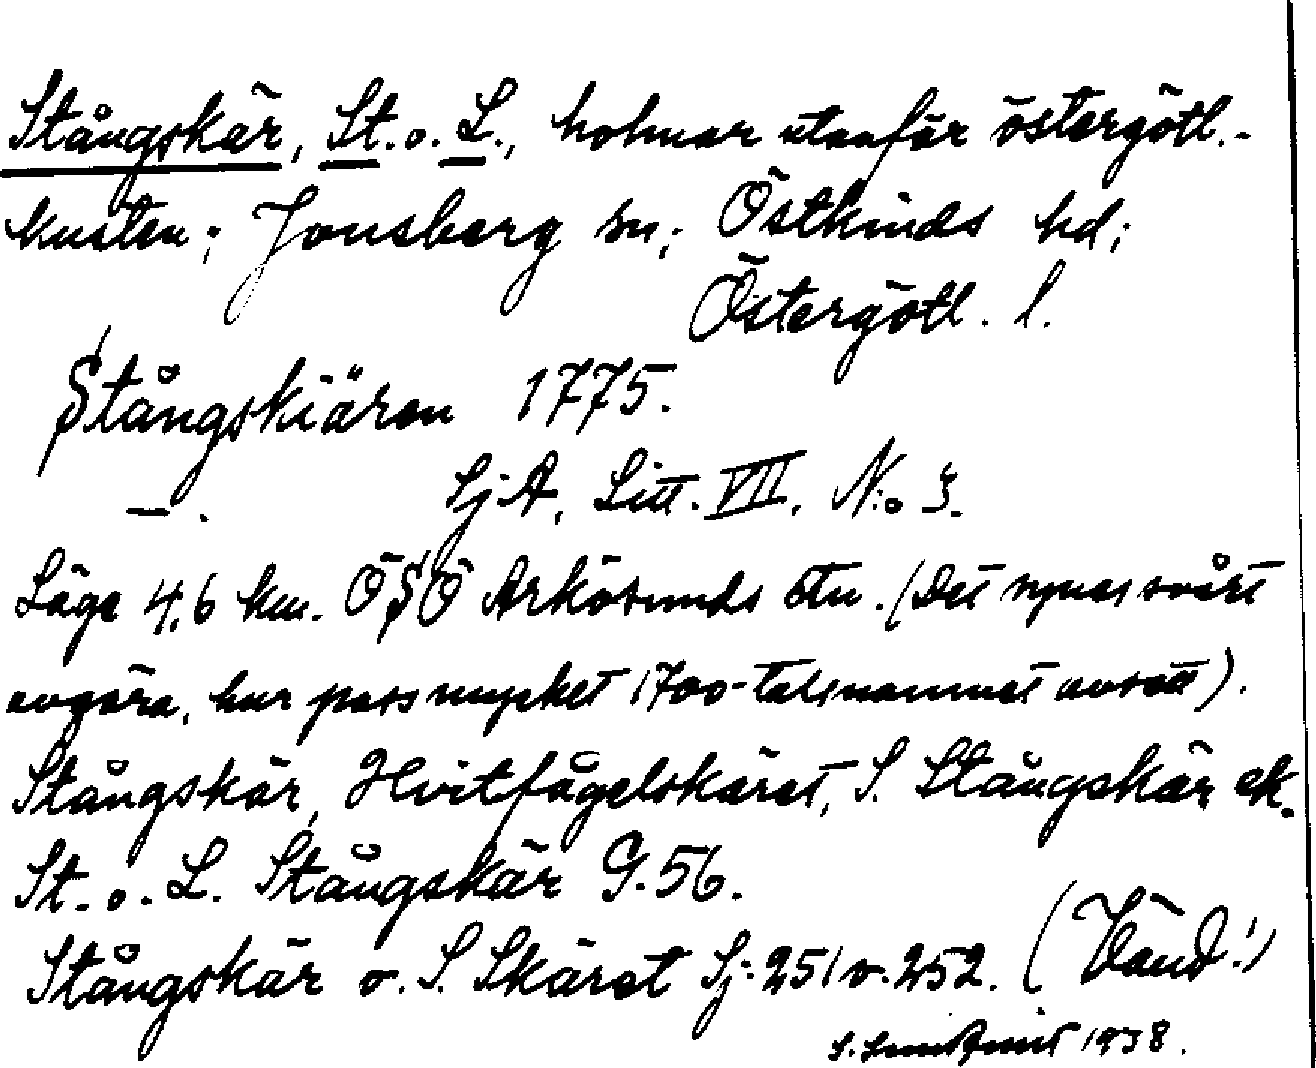 Stångskär, St. o. L., holmar utanför östergötl.-
kusten; Jonsberg sn; Östkinds hd;
Östergötl. l.
Stångskiären 1775.
—. Sj.A, Litt. VII. N:o 3.
Läge 4,6 km. ÖSÖ Arkösunds stn. (Det synes svårt
avgöra, hur pass mycket 1700-talsnamnet avsett).
Stångskär, Hvitfågelskäret, S. Stångskär ek.
St. o. L. Stångskär G. 56.
Stångskär o. S. Skäret Sj. 251 o. 252. (Vänd!)
1938.